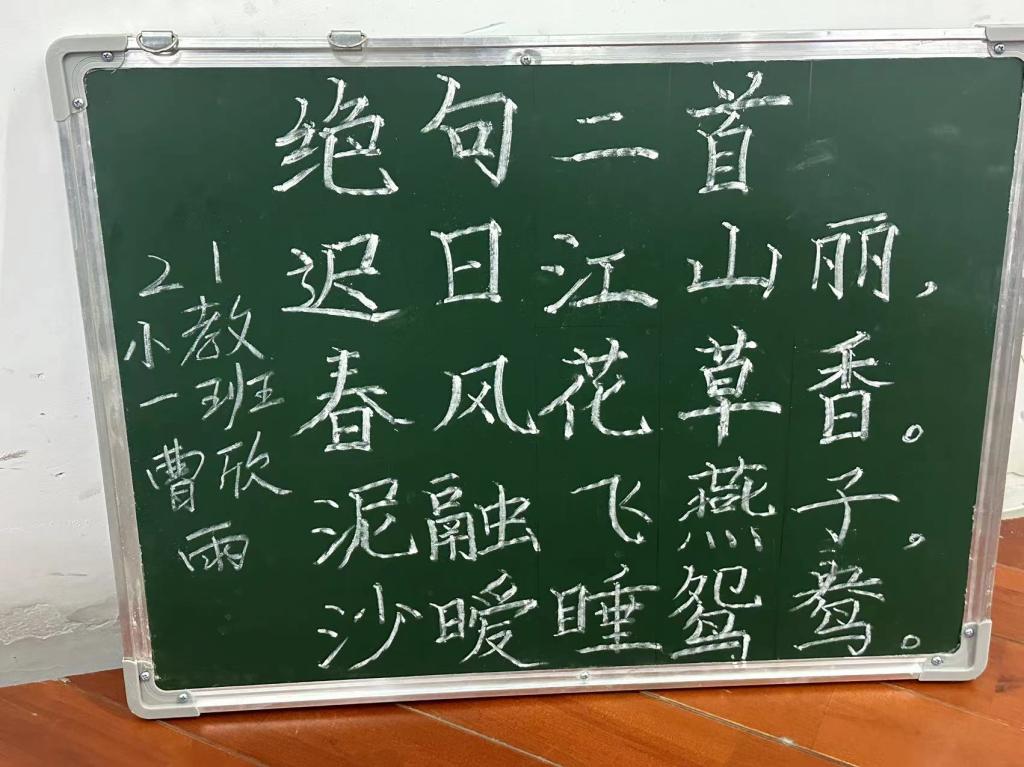 绝句二首
迟日江山丽,
春风花草香。
泥融飞燕子,
沙暖睡鸳鸯。
21
小教
一班
曹欣
雨